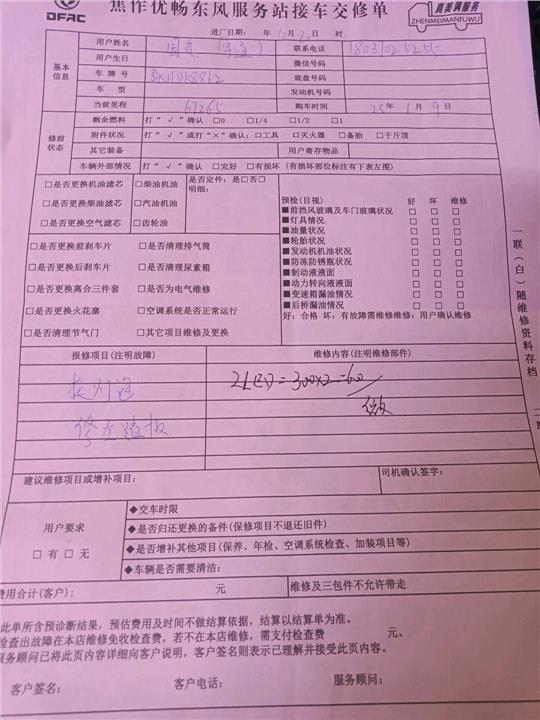 焦作优畅东风服务站接车交修单
DFAC
真美满服务
ZHENMEIMANFUWU
进厂日期: 年 10月 2日 时
基本信息
用户姓名 联系电话 18031025255
用户生日 微信号码
车 牌 号 底盘号码
车 型 发动机号码
当前里程 67265 购车时间 25年 1月 9日
修前状态
剩余燃料 打“√”确认 □0 □1/4 □1/2 □1
附件状况 打“√”或打“×”确认: □工具 □灭火器 □备胎 □千斤顶
其它装备 用户寄存物品
车辆外部情况 打“√”确认 □完好 □有损坏 (有损坏部位标注有下表左图)
□是否更换机油滤芯 □柴油机油 是否定件: 是□否□
明细:
□是否更换柴油滤芯 □汽油机油
□是否更换空气滤芯 □齿轮油
□是否更换前刹车片 □是否清理排气筒
□是否更换后刹车片 □是否清理尿素箱
□是否更换离合三件套 □是否为电气维修
□是否更换火花塞 □空调系统是否正常运行
□是否清理节气门 □其它项目维修及更换
预检(目视) 好 坏 维修
■前挡风玻璃及车门玻璃状况 □ □ □
■灯具情况 □ □ □
■油量状况 □ □ □
■轮胎状况 □ □ □
■发动机机油状况 □ □ □
■防冻防锈瓶状况 □ □ □
■制动液液面 □ □ □
■动力转向液液面 □ □ □
■变速箱漏油情况 □ □ □
■后桥漏油情况 □ □ □
好: 合格 坏: 有故障需维修维修: 用户确认维修
报修项目(注明故障) 维修内容(注明维修部件)
换灯泡 2LED=300×2=600
修左踏板
建议维修项目或增补项目: 司机确认签字:
用户要求
□ 有 □ 无
◆交车时限
◆是否归还更换的备件(保修项目不退还旧件)
◆是否增补其他项目(保养、年检、空调系统检查、加装项目等)
◆车辆是否需要清洁:
费用合计(客户): 元 维修及三包件不允许带走
此单所含预诊断结果,预估费用及时间不做结算依据,结算以结算单为准。
检查出故障在本店维修免收检查费,若不在本店维修,需支付检查费 元。
服务顾问已将此页内容详细向客户说明,客户签名则表示已理解并接受此页内容。
客户签名: 客户电话: 服务顾问:
一联(白)随维修资料存档